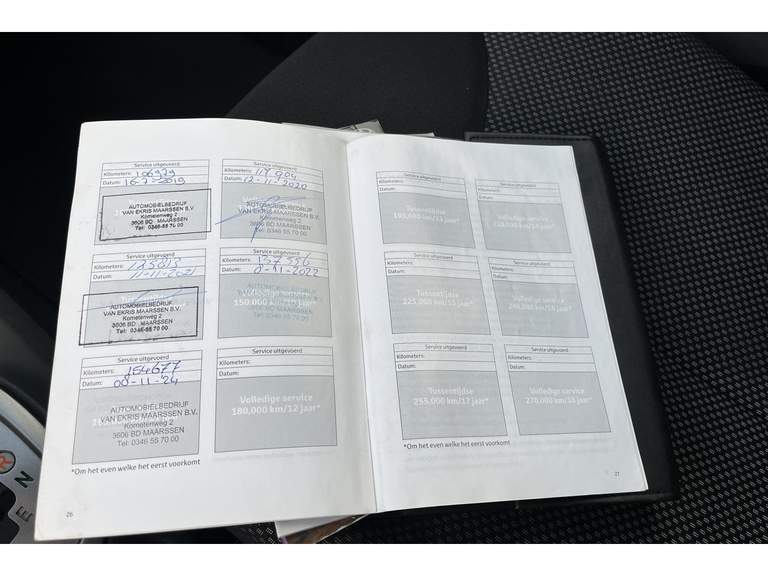 Service uitgevoerd
Kilometers: 106979
Datum: 16-7-2019
AUTOMOBIELBEDRIJF
VAN EKRIS MAARSSEN B.V.
Kometenweg 2
3606 BD MAARSSEN
Tel: 0346 55 70 00
Service uitgevoerd
Kilometers:
Datum: 12-11-2020
AUTOMOBIELBEDRIJF
VAN EKRIS MAARSSEN B.V.
Kometenweg 2
3606 BD MAARSSEN
Tel: 0346 55 70 00
Service uitgevoerd
Kilometers:
Datum: 11-11-2021
AUTOMOBIELBEDRIJF
VAN EKRIS MAARSSEN B.V.
Kometenweg 2
3606 BD MAARSSEN
Tel: 0346 55 70 00
Service uitgevoerd
Kilometers: 137556
Datum: -11-2022
Volledige service
150.000 km/10 jaar*
AUTOMOBIELBEDRIJF
VAN EKRIS MAARSSEN B.V.
Kometenweg 2
3606 BD MAARSSEN
Tel: 0346 55 70 00
Service uitgevoerd
Kilometers: 154677
Datum: 00-11-24
AUTOMOBIELBEDRIJF
VAN EKRIS MAARSSEN B.V.
Kometenweg 2
3606 BD MAARSSEN
Tel: 0346 55 70 00
Service uitgevoerd
Kilometers:
Datum:
Volledige service
180.000 km/12 jaar*
*Om het even welke het eerst voorkomt
26
Service uitgevoerd
Kilometers:
Datum:
Tussentijdse
195.000 km/13 jaar*
Service uitgevoerd
Kilometers:
Datum:
Volledige service
Service uitgevoerd
Kilometers:
Datum:
Tussentijdse
225.000 km/15 jaar*
Service uitgevoerd
Kilometers:
Datum:
Volledige service
240.000 km/16 jaar*
Service uitgevoerd
Kilometers:
Datum:
Tussentijdse
255.000 km/17 jaar*
Service uitgevoerd
Kilometers:
Datum:
Volledige service
270.000 km/18 jaar*
*Om het even welke het eerst voorkomt
27
R
N
E